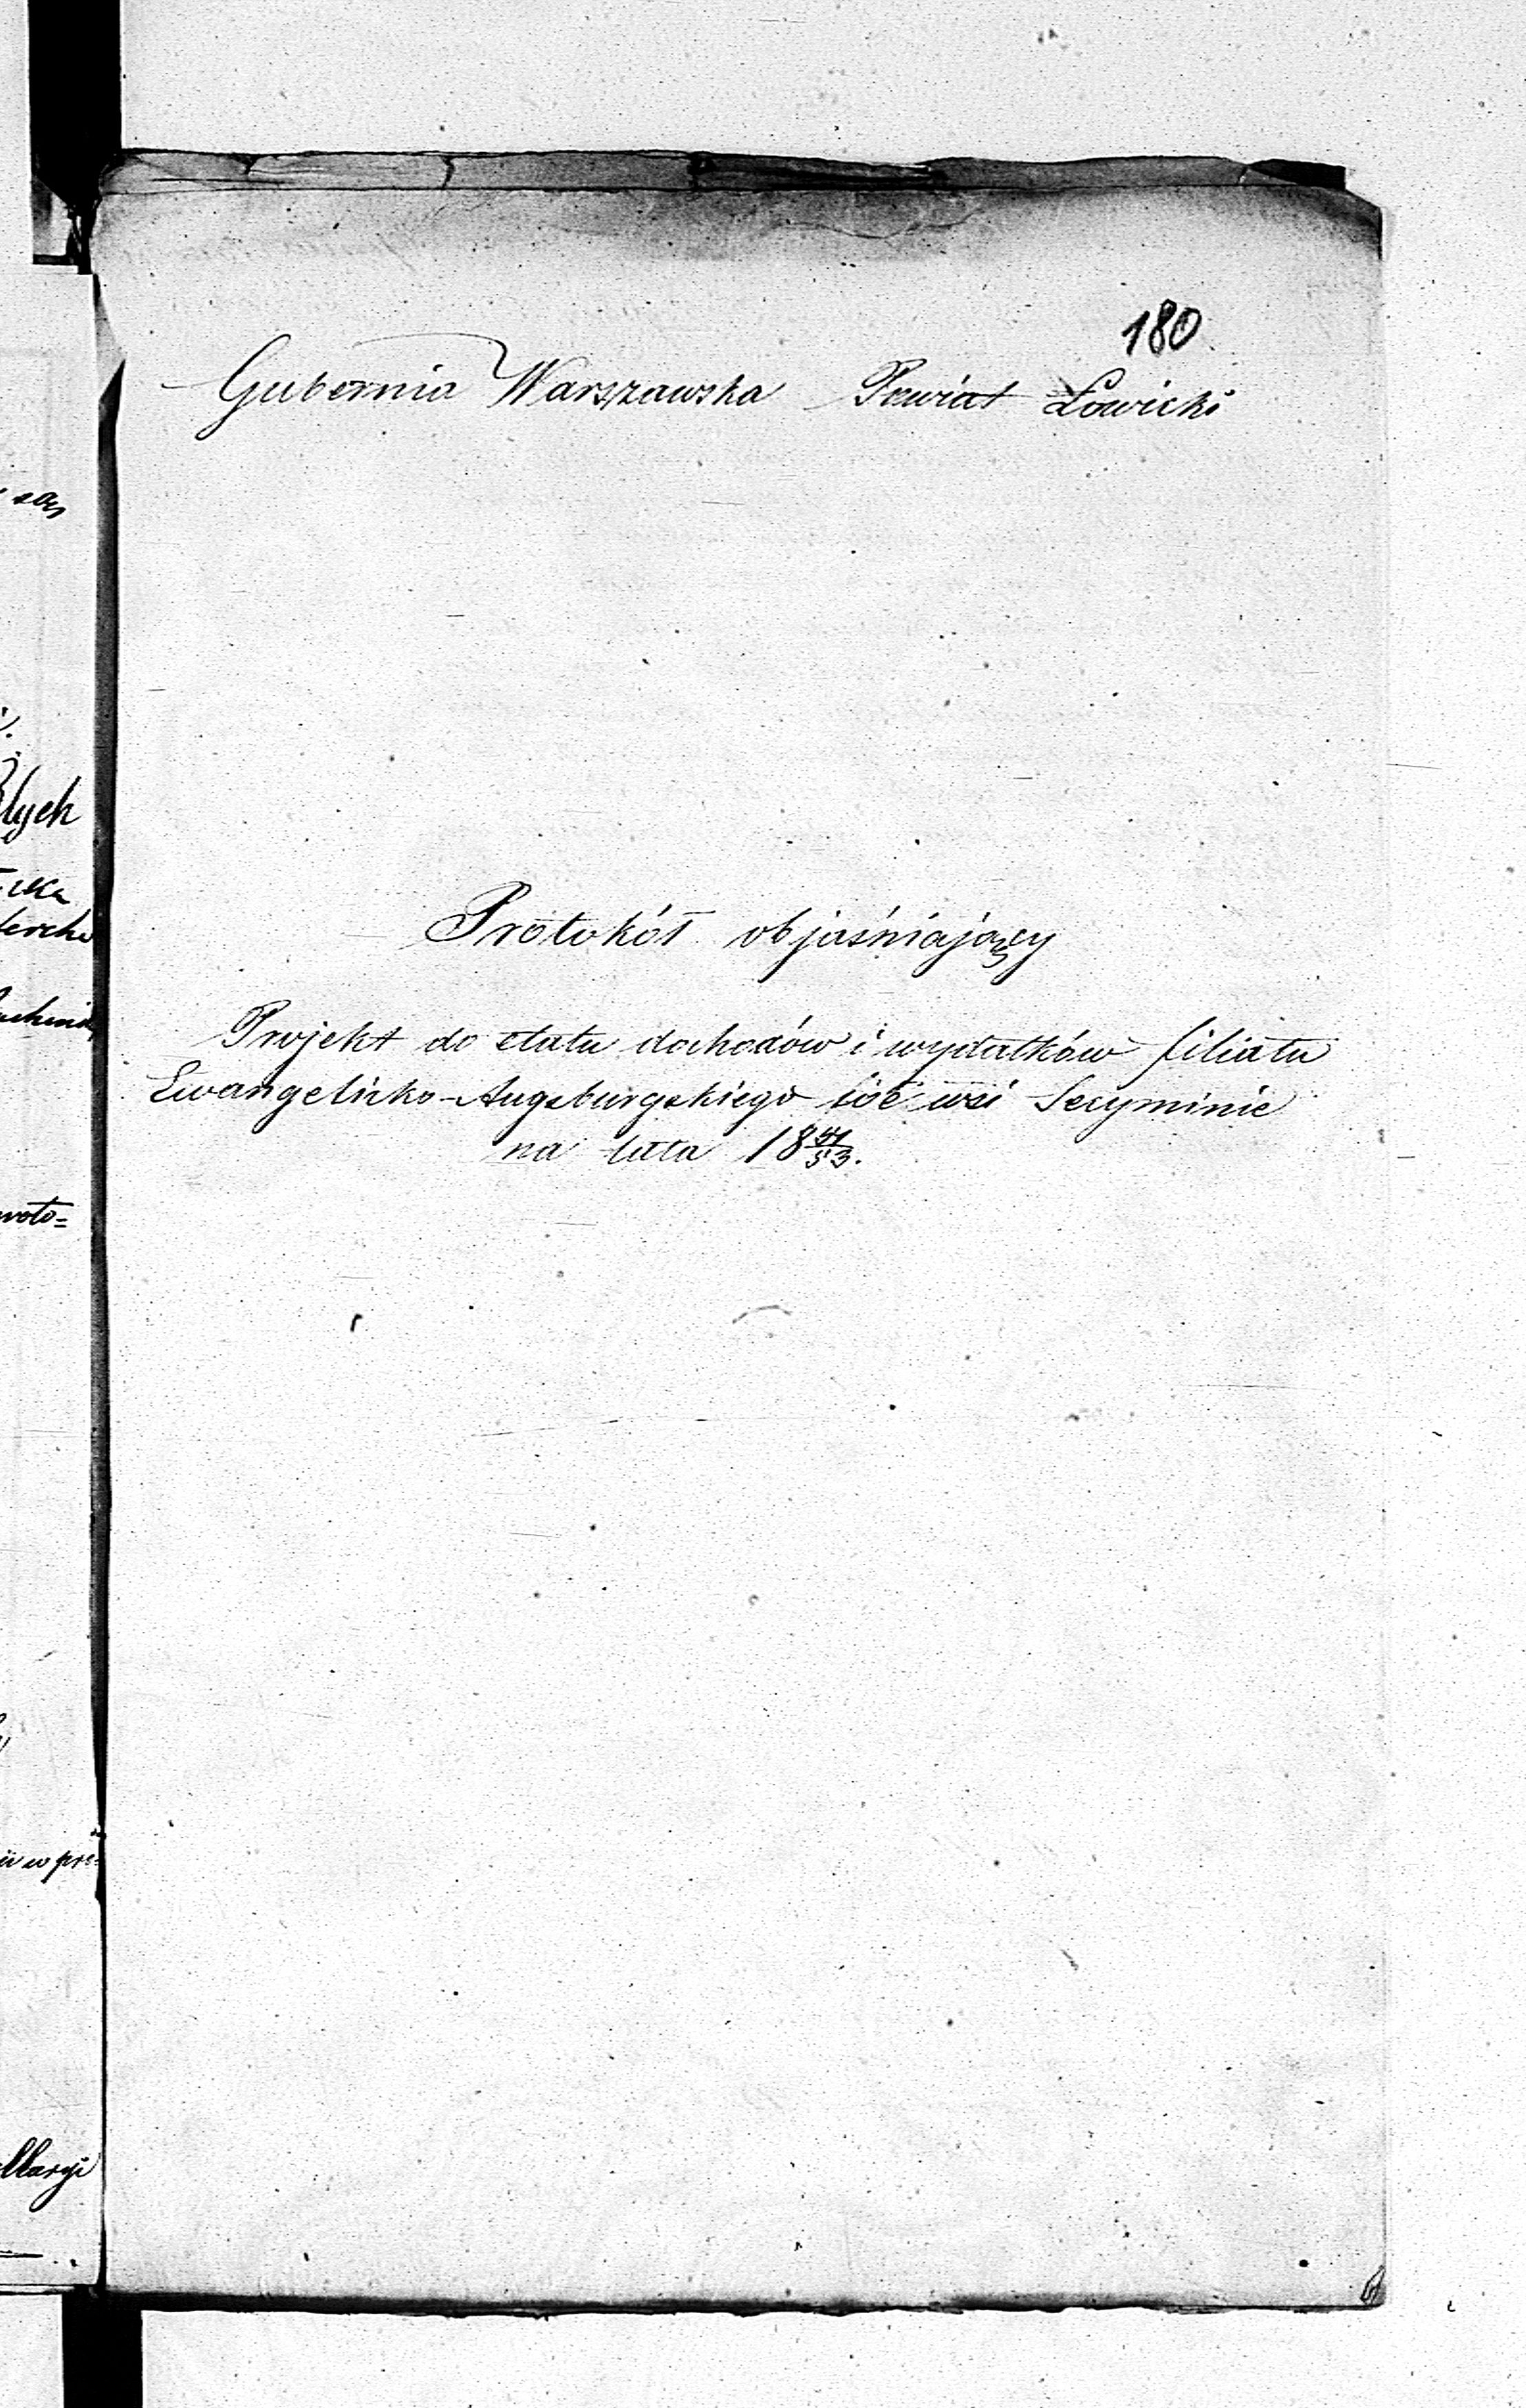 180
Gubernia Warszawska Powiat Łowicki
Protokół objaśniający
Projekt do etatu dochodów i wydatków filiatu
Ewangelicko-Augsburgskiego we wsi Secyminie
na lata 18 51/53.
lych
woto=
w prze=